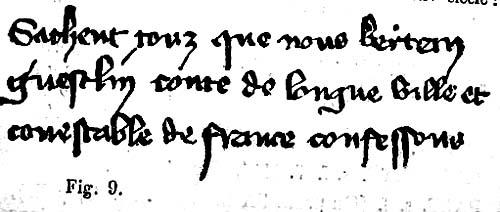 Sachent touz que nous bertran
guesclin conte de longue ville et
conestable de france confessons
Fig. 9.